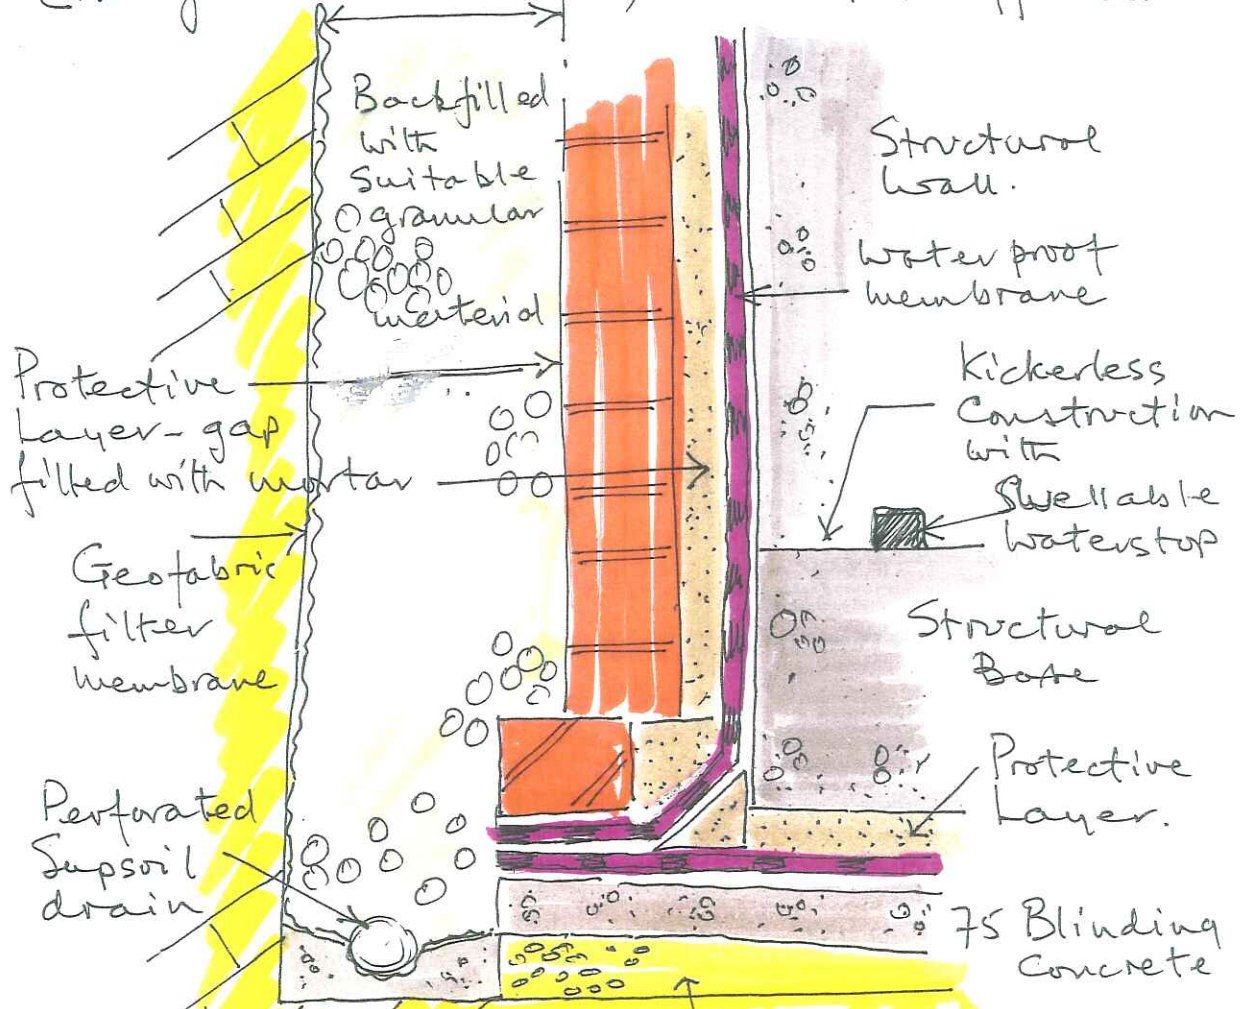 Backfilled
with
suitable
granular
material
Structural
wall.
waterproof
membrane
Protective
Layer-gap
filled with mortar
Kickerless
Construction
with
Swellable
waterstop
Geofabric
filter
membrane
Structural
Base
Protective
Layer.
Perforated
Supsoil
drain
75 Blinding
Concrete